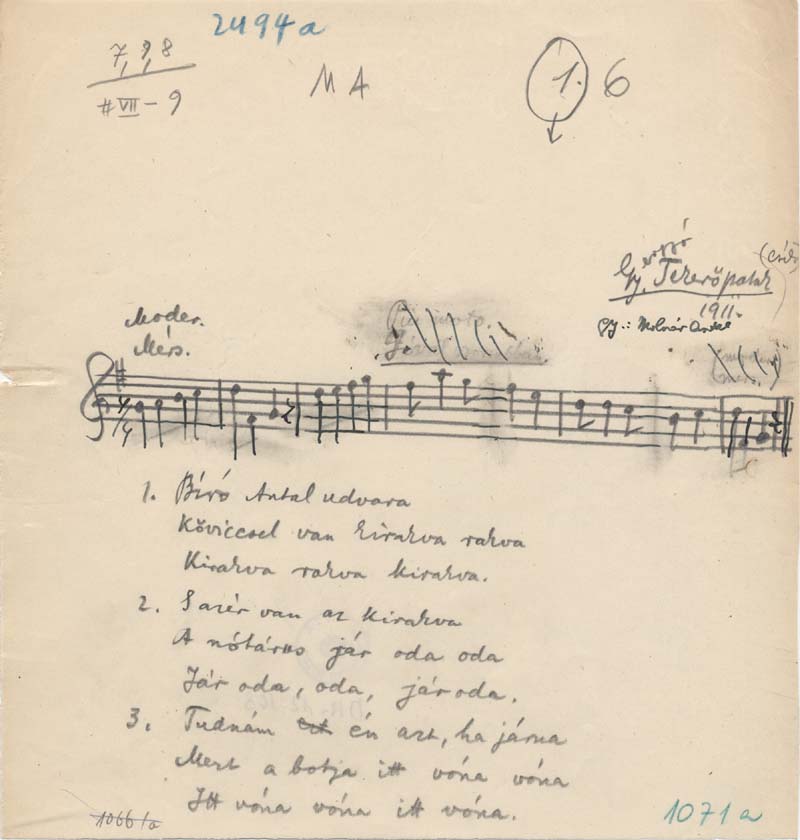 2494a
7, 9, 8
# VII - 9
M A
1. 6
Gy. Tekerőpatak
1911.
Gy.: Molnár Antal
Moder.
Mérs.
4/4
1. Bíró Antal udvara
Kőviccsel van kirakva rakva
Kirakva rakva kirakva.
2. Sazér van az kirakva
A nótárus jár oda oda
Jár oda, oda, jár oda.
3. Tudnám én azt, ha járna
Mert a botja itt vóna vóna
Itt vóna vóna itt vóna.
1066/a
1071a